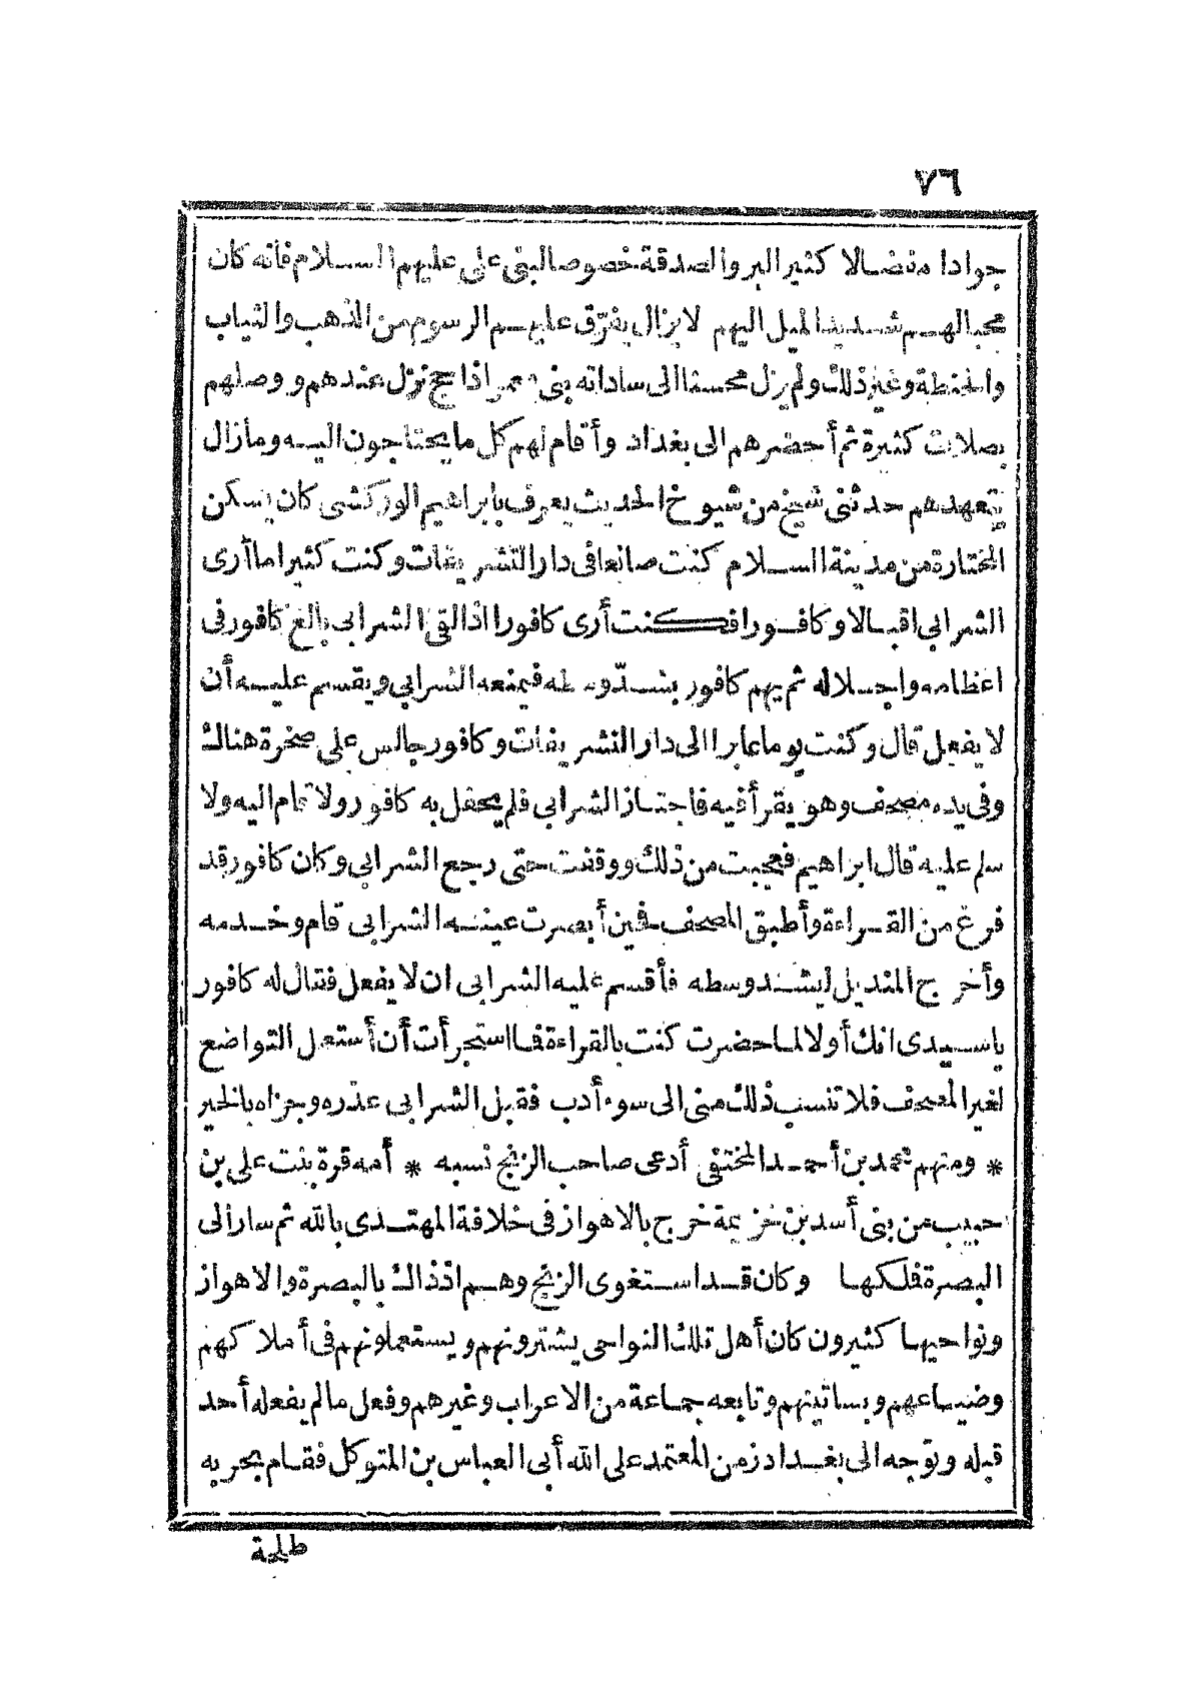 ٧٦
جوادا مفضالا كثير البر والصدقة خصوصا لبنى على عليهم السلام فانه كان
محبا لهم شديد الميل اليهم لايزال يفرّق عليهم الرسوم من الذهب والثياب
والحنطة وغير ذلك ولم يزل محسنا الى ساداته بنى معمر اذا حج نزل عندهم ووصلهم
بصلات كثيرة ثم أحضرهم الى بغداد وأقام لهم كل ما يحتاجون اليه ومازال
يتعهدهم حدثنى شيخ من شيوخ الحديث يعرف بابراهيم الوركشى كان يسكن
المختارة من مدينة السلام كنت صانعا فى دار التشريفات وكنت كثيرا ما أرى
الشرابى اقبالا وكافورا فكنت أرى كافورا اذا لقى الشرابى بالغ كافور فى
اعظامه واجلاله ثم يهم كافور بشدّ وسطه فيمنعه الشرابى ويقسم عليه أن
لا يفعل قال وكنت يوما عابرا الى دار التشريفات وكافور جالس على صخرة هناك
وفى يده مصحف وهو يقرأ فيه فاجتاز الشرابى فلم يحفل به كافور ولا قام اليه ولا
سلم عليه قال ابراهيم فعجبت من ذلك ووقفت حتى رجع الشرابى وكان كافور قد
فرغ من القراءة وأطبق المصحف فحين أبصرت عينه الشرابى قام وخدمه
وأخرج المنديل ليشد وسطه فأقسم عليه الشرابى ان لا يفعل فقال له كافور
ياسيدى انك أولا لما حضرت كنت بالقراءة فما استجرأت أن أستعمل التواضع
لغير المصحف فلا تنسب ذلك منى الى سوء أدب فقبل الشرابى عذره وجزاه بالخير
* ومنهم محمد بن أحمد المختفى أدعى صاحب الزنج نسبه * أمه قرة بنت على بن
حبيب من بنى أسد بن خزيمة خرج بالاهواز فى خلافة المهتدى بالله ثم سار الى
البصرة فملكها وكان قد استغوى الزنج وهم اذذاك بالبصرة والاهواز
ونواحيها كثيرون كان أهل تلك النواحى يشترونهم ويستعملونهم فى أملاكهم
وضياعهم وبساتينهم وتابعه جماعة من الاعراب وغيرهم وفعل مالم يفعله أحد
قبله وتوجه الى بغداد زمن المعتمد على الله أبى العباس بن المتوكل فقام بحربه
طلحة